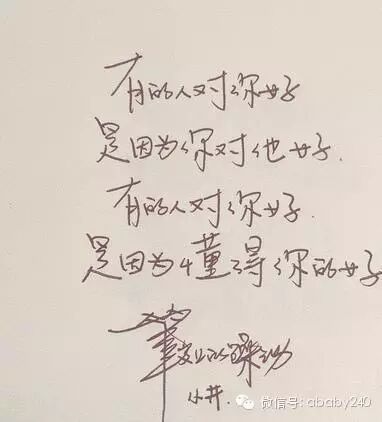 有的人对你好
是因为你对他好.
有的人对你好.
是因为懂得你的好
笔尖上的躁动
小井.
微信号: ababy240